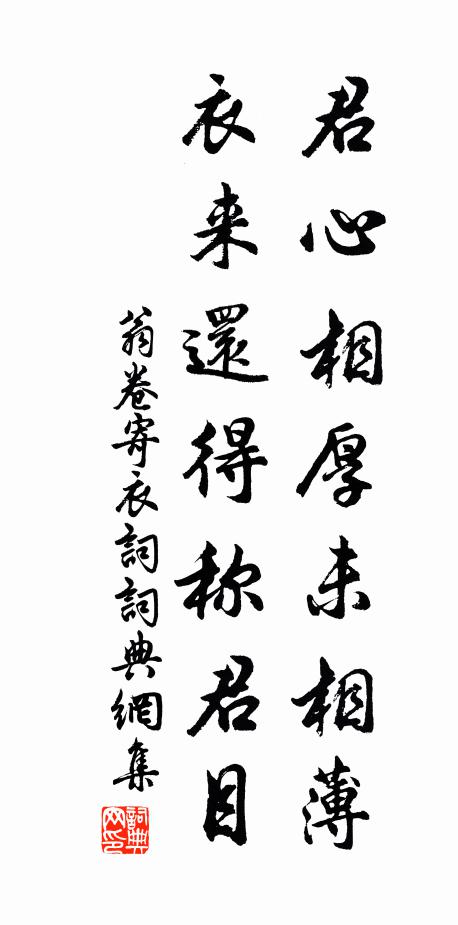 君心相厚未相薄
衣来還得称君目
翁卷寄衣詞詞典網集
詞典網印